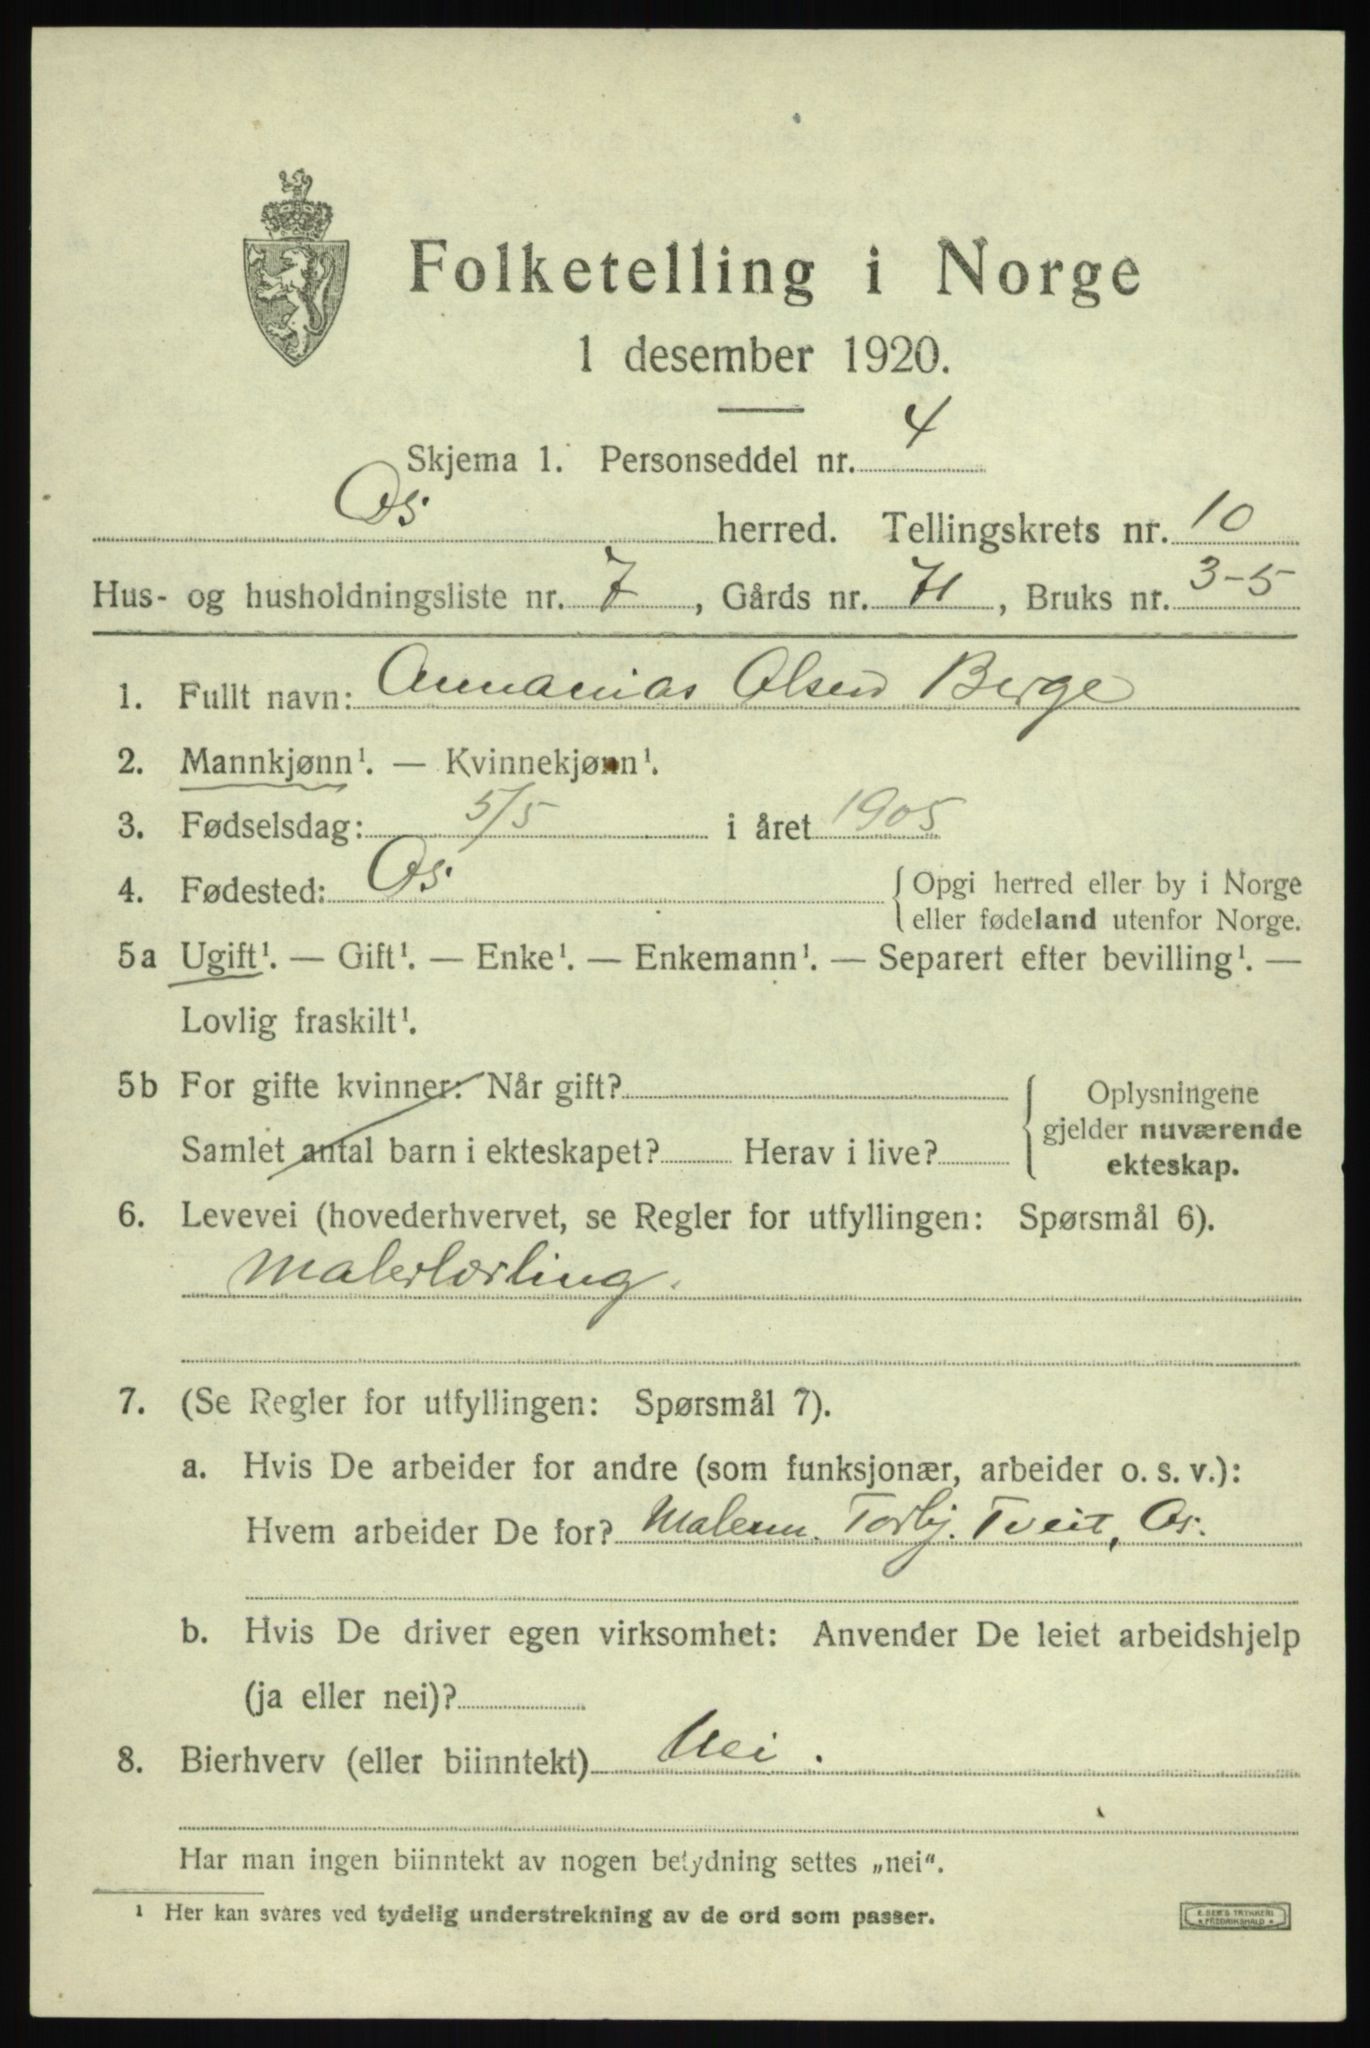 Folketelling i Norge
1 desember 1920.
Skjema 1. Personseddel nr. 4
Os herred. Tellingskrets nr. 10
Hus- og husholdningsliste nr. 7, Gårds nr. 71, Bruks nr. 3-5
1. Fullt navn: Annanias Olsen Berge
2. Mannkjønn¹. — Kvinnekjønn¹.
3. Fødselsdag: 5/5 i året 1905
4. Fødested: Os {Opgi herred eller by i Norge
eller fødeland utenfor Norge.
5a Ugift¹. — Gift¹. — Enke¹. — Enkemann¹. — Separert efter bevilling¹. —
Lovlig fraskilt¹.
5b For gifte kvinner: Når gift?
Samlet antal barn i ekteskapet? Herav i live?
Oplysningene
gjelder nuværende
ekteskap.
6. Levevei (hovederhvervet, se Regler for utfyllingen: Spørsmål 6).
Malerlærling.
7. (Se Regler for utfyllingen: Spørsmål 7).
a. Hvis De arbeider for andre (som funksjonær, arbeider o. s. v.):
Hvem arbeider De for? Malerm. Torbj. Tveit, Os.
b. Hvis De driver egen virksomhet: Anvender De leiet arbeidshjelp
(ja eller nei)?
8. Bierhverv (eller biinntekt) Nei.
Har man ingen biinntekt av nogen betydning settes „nei".
¹ Her kan svares ved tydelig understrekning av de ord som passer.
E. SEM'S TRYKKERI
FREDRIKSHALD